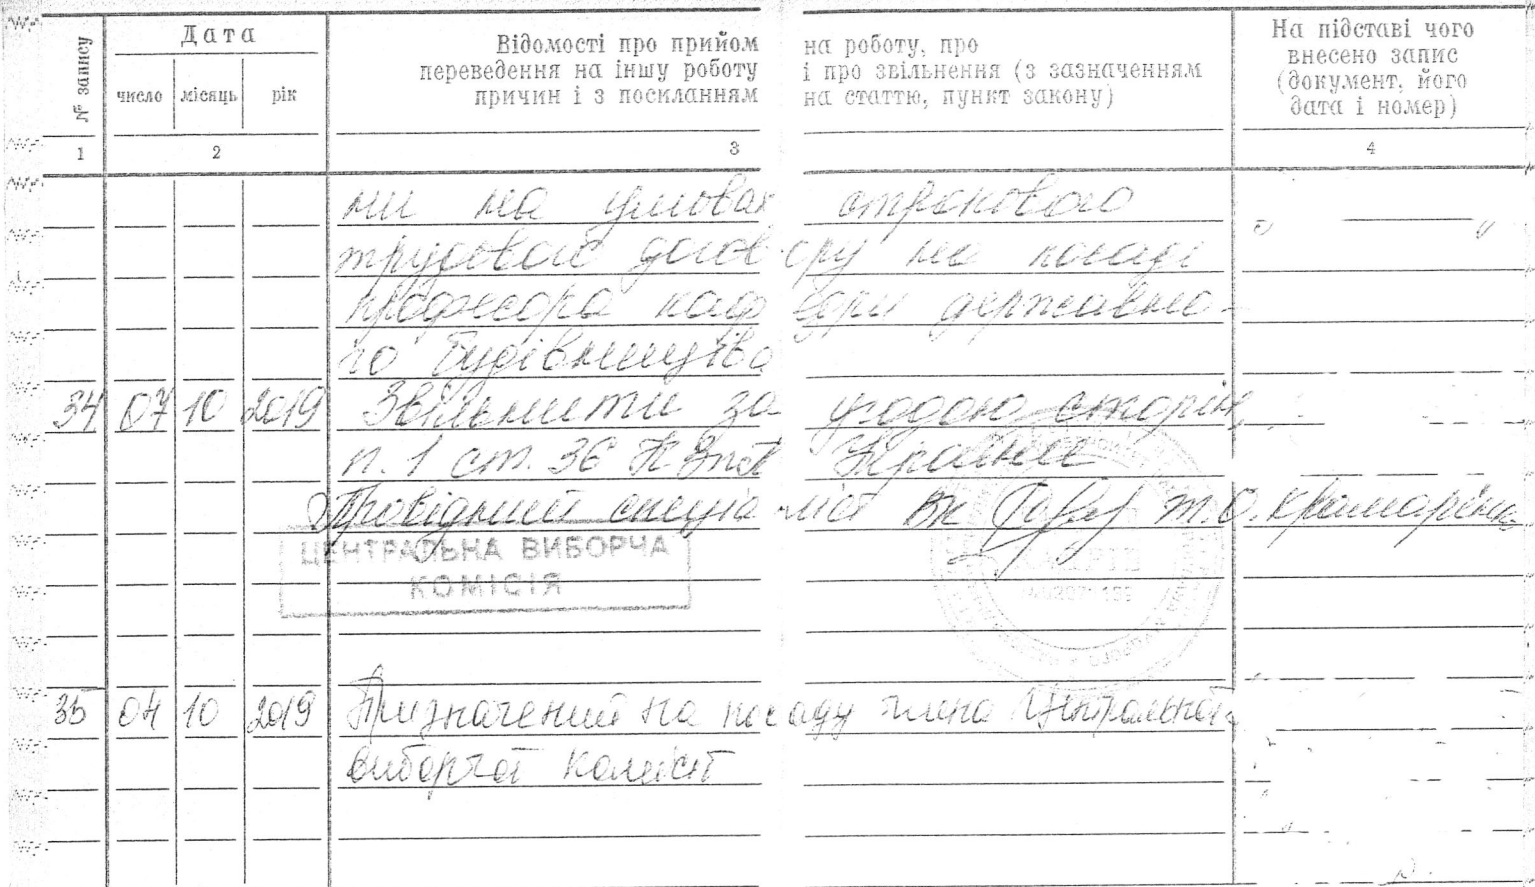 № запису
Дата
число місяць рік
Відомості про прийом на роботу, про
переведення на іншу роботу і про звільнення (з зазначенням
причин і з посиланням на статтю, пункт закону)
На підставі чого
внесено запис
(документ, його
дата і номер)
1 2 3 4
ми на умовах строкового
трудового договору на посаді
професора кафедри державно-
го будівництва
34 07 10 2019 Звільнити за угодою сторін
п. 1 ст. 36 КЗпП України
Провідний спеціаліст ВК Т.О.
ЦЕНТРАЛЬНА ВИБОРЧА
КОМІСІЯ
35 04 10 2019 Призначений на посаду члена Центральної
виборчої комісії